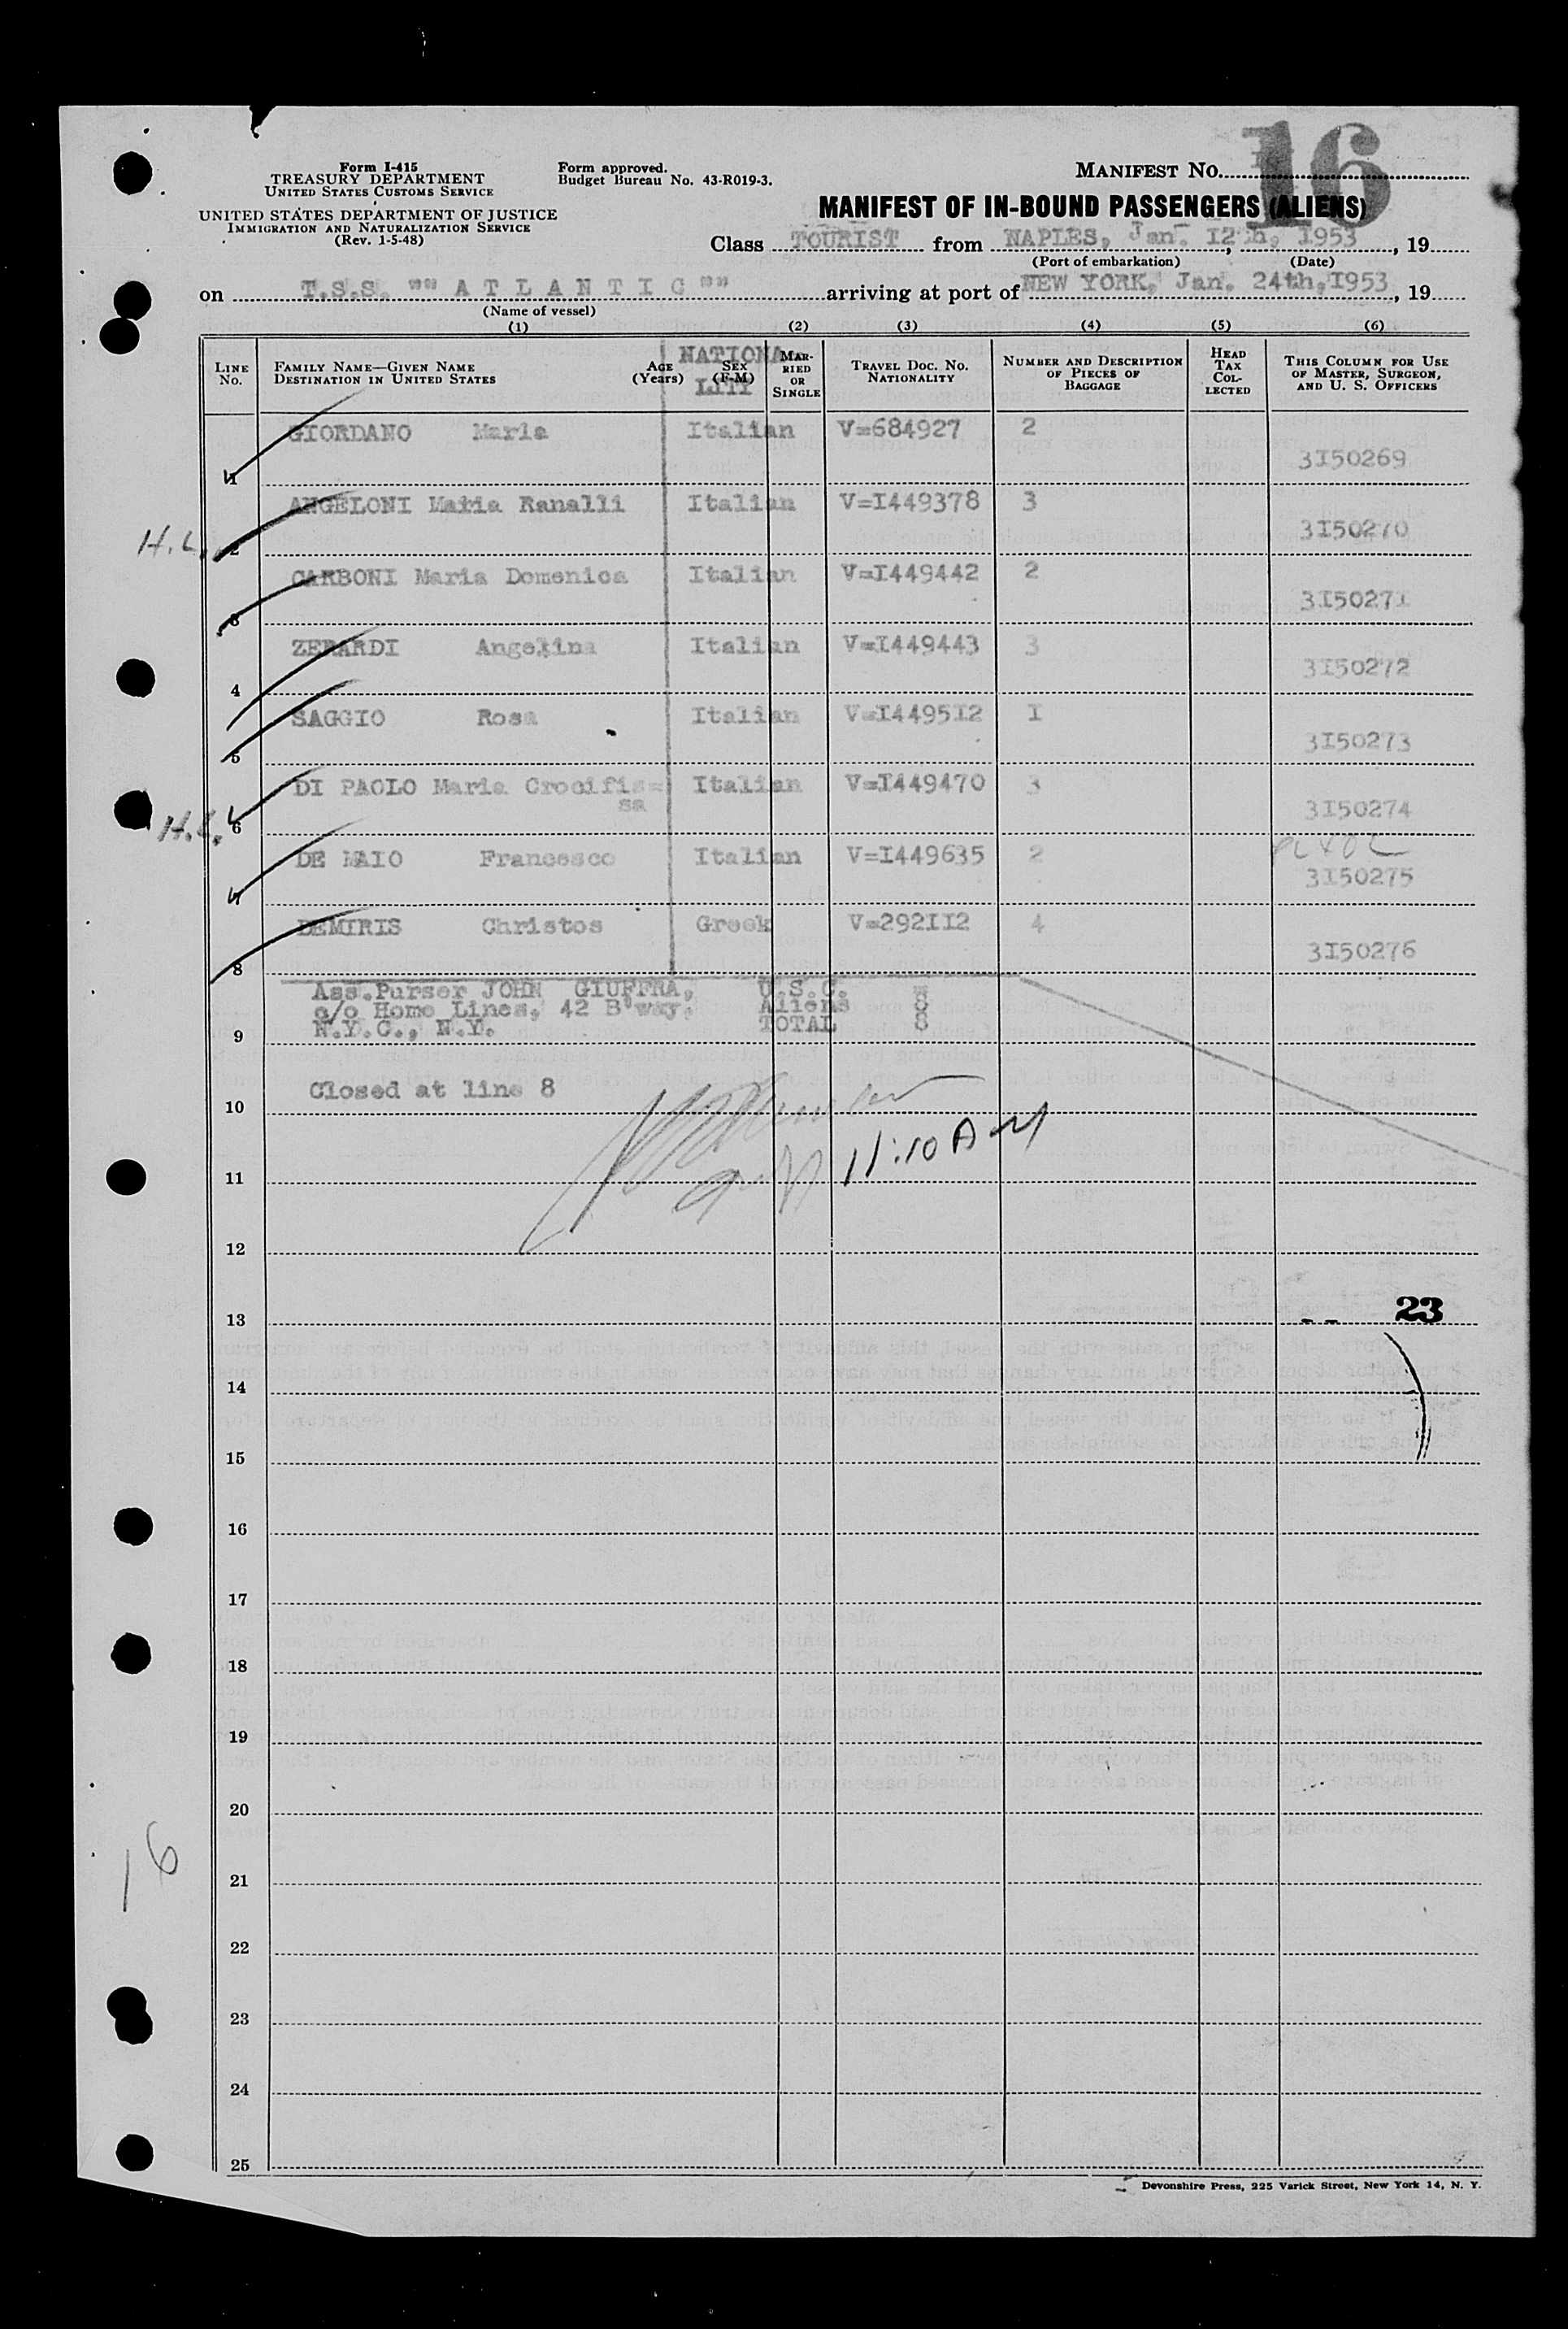 16
Form I-415
TREASURY DEPARTMENT
UNITED STATES CUSTOMS SERVICE
UNITED STATES DEPARTMENT OF JUSTICE
IMMIGRATION AND NATURALIZATION SERVICE
(Rev. 1-5-48)
Form approved.
Budget Bureau No. 43-R019-3.
MANIFEST NO.
MANIFEST OF IN-BOUND PASSENGERS (ALIENS)
Class TOURIST from NAPLES, Jan. I2th, I953, 19
(Port of embarkation) (Date)
on T.S.S. "" A T L A N T I C "" arriving at port of NEW YORK, Jan. 24th, I953, 19
(Name of vessel)
(1) (2) (3) (4) (5) (6)
LINE No. FAMILY NAME—GIVEN NAME DESTINATION IN UNITED STATES AGE (Years) SEX (F-M) NATIONALITY MARRIED OR SINGLE TRAVEL DOC. NO. NATIONALITY NUMBER AND DESCRIPTION OF PIECES OF BAGGAGE HEAD TAX COLLECTED THIS COLUMN FOR USE OF MASTER, SURGEON, AND U. S. OFFICERS
1 GIORDANO Maria Italian V=684927 2 3I50269
H.L. 2 ANGELONI Maria Ranalli Italian V=I449378 3 3I50270
3 CARBONI Maria Domenica Italian V=I449442 2 3I50271
4 ZERARDI Angelina Italian V=I449443 3 3I50272
5 SAGGIO Rosa Italian V=I4495I2 I 3I50273
H.L. 6 DI PAOLO Maria Crocifis=sa Italian V=I449470 3 3I50274
7 DE MAIO Francesco Italian V=I449635 2 3I50275
8 DEMIRIS Christos Greek V=292II2 4 3I50276
Ass.Purser JOHN GIUFFRA, U.S.C. =
c/o Home Lines, 42 B'way. Aliens 8
9 N.Y.C., N.Y. TOTAL 8
10 Closed at line 8
11 11:10 AM
12
13 -- 23
14
15
16
17
18
19
20
16
21
22
23
24
25
Devonshire Press, 225 Varick Street, New York 14, N. Y.